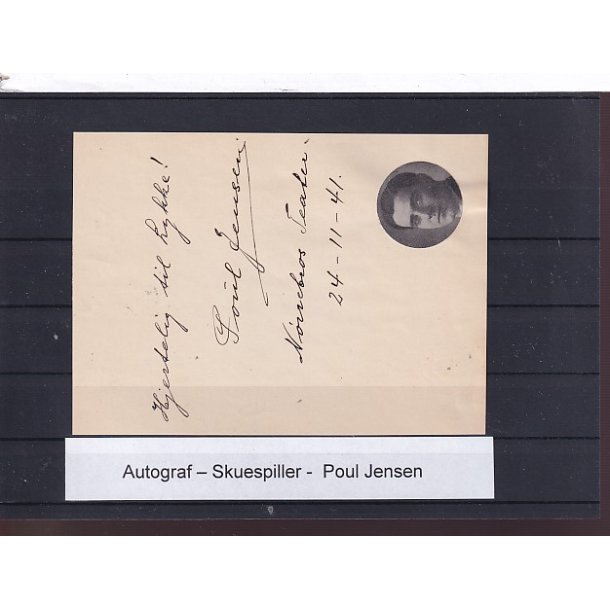 Hjertelig til Lykke!
Poul Jensen
Nörrebros Teater.
24-11-41.
Autograf – Skuespiller - Poul Jensen